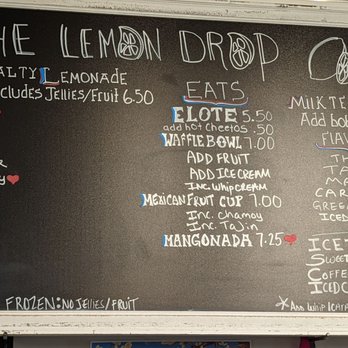 THE LEMON DROP
ALTY LEMONADE
cludes Jellies/Fruit 6.50
EATS
ELOTE 5.50
add hot Cheetos .50
WAFFLE BOWL 7.00
ADD FRUIT
ADD ICE CREAM
INC. WHIP CREAM
MEXICAN FRUIT CUP 7.00
Inc. Chamoy
Inc. TaJin
MANGONADA 7.25
FROZEN: NO JELLIES/FRUIT
MILK TE
Add bob
FLAV
TH
TA
MA
CAR
GREE
ICED
ICET
SWEE
COFFE
ICED C